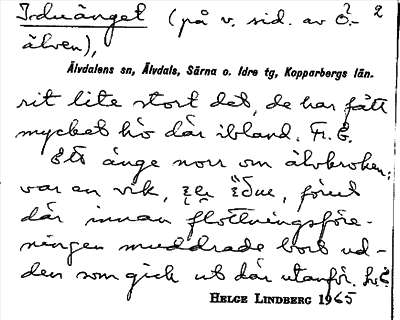 Iduänget (på v. sid. av Ö.- 2
älven),
Älvdalens sn, Älvdals, Särna o. Idre tg, Kopparbergs län.
rit lite stort det, de har fått
mycket hö där ibland. Fr. E.
Ett änge norr om älvkroken;
var en vik, förut
där innan flottningsföre-
ningen muddrade bort ud-
den som gick ut där utanför.
HELGE LINDBERG 1965